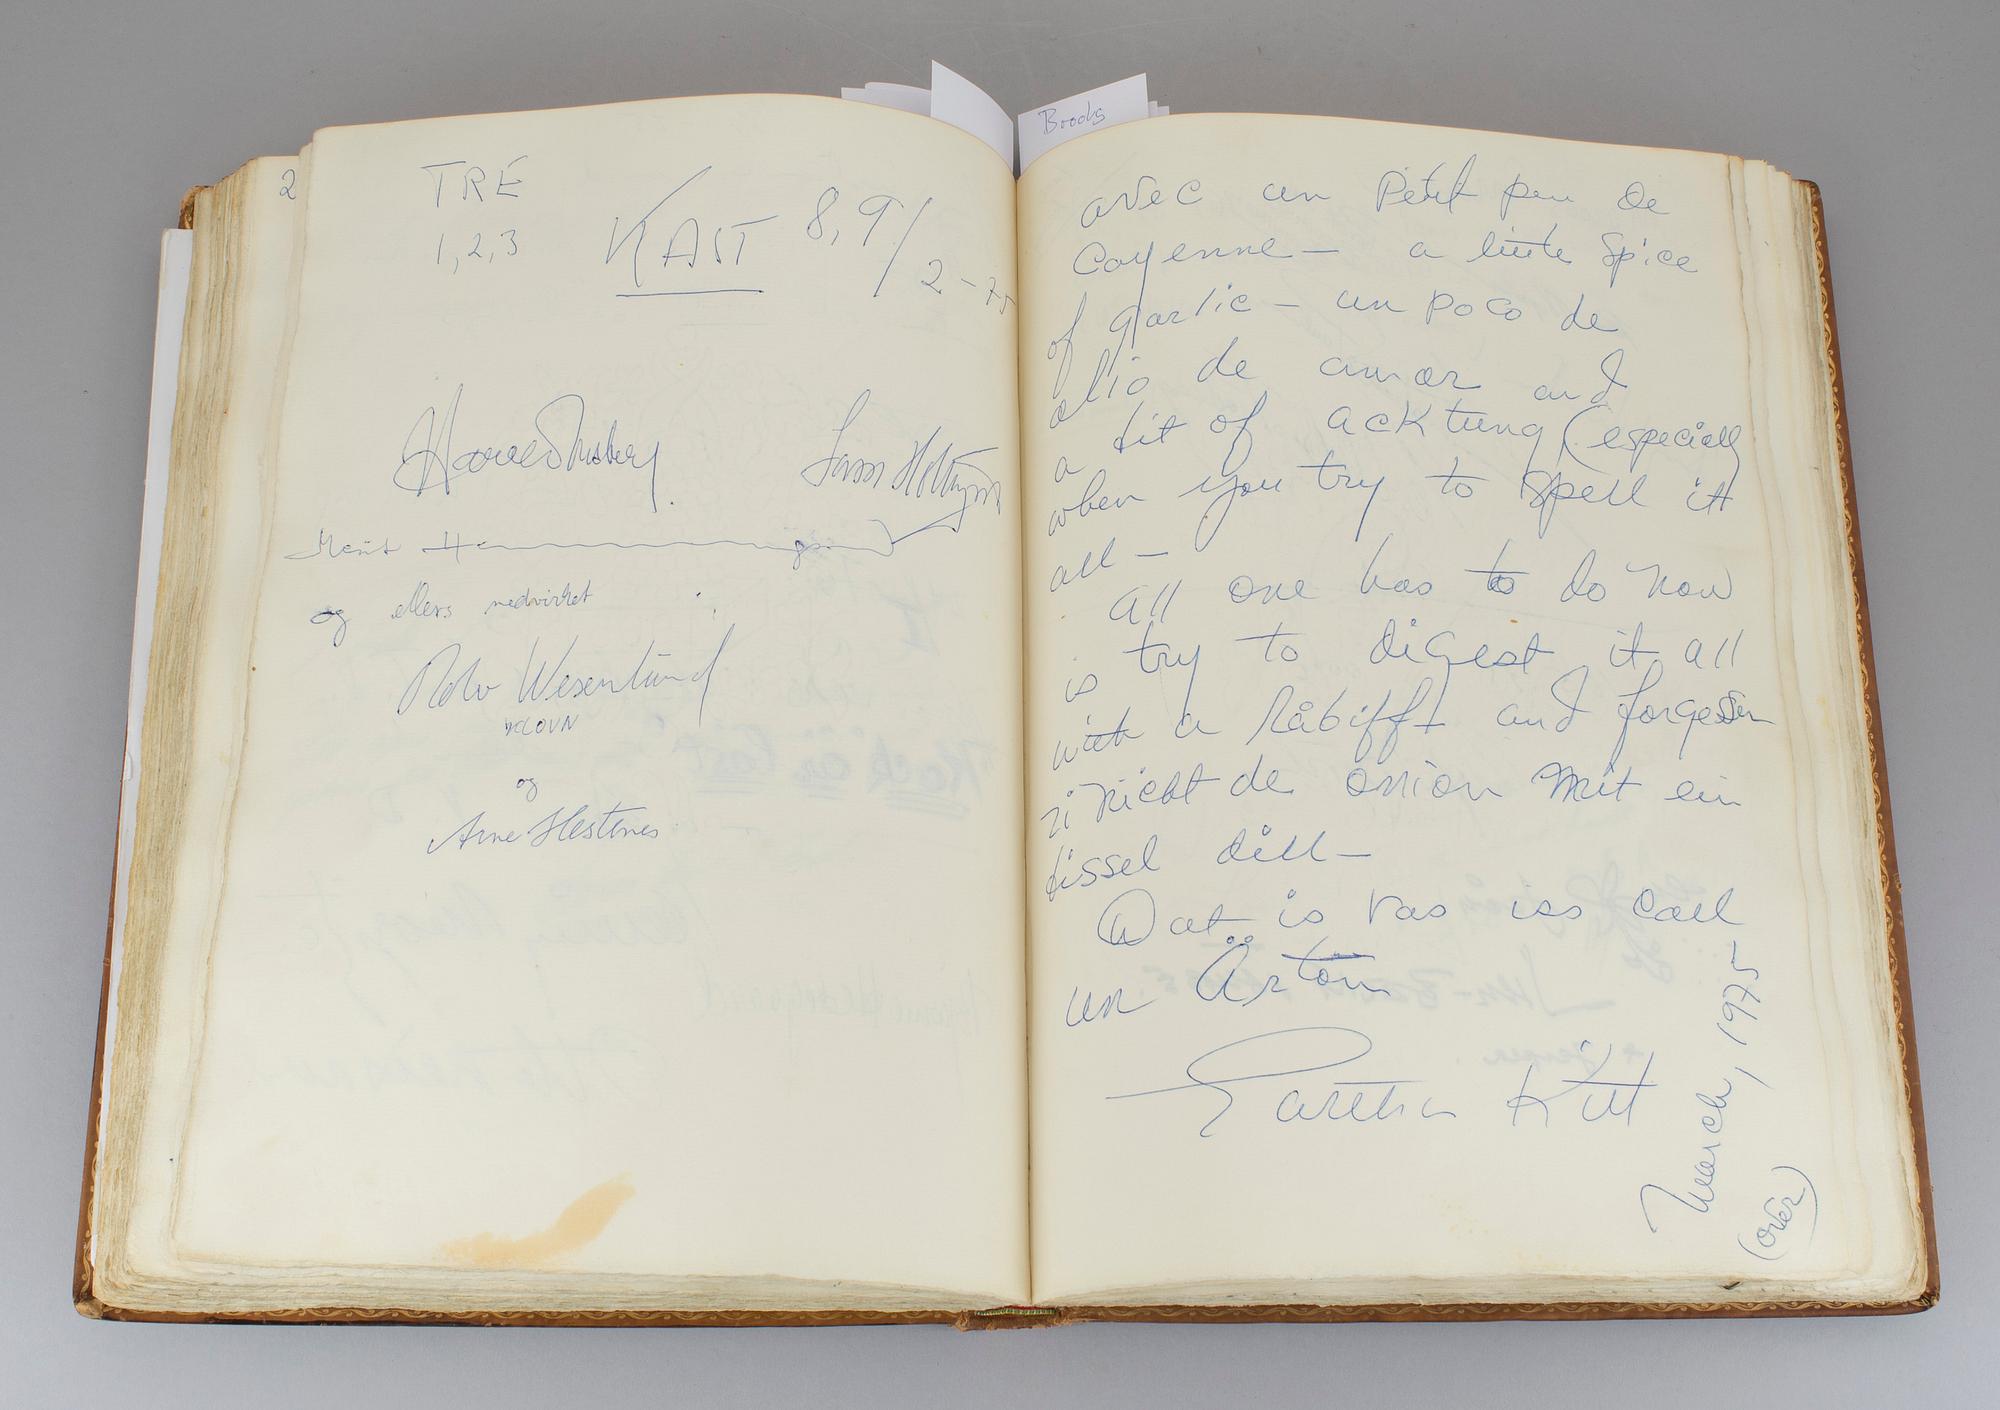 Brooks
2
TRE
1,2,3
KAST 8,9/2-75
og ellers medvirket
Rolv Wesenlund
KLOVN
og
Arne Hestenes
avec un Petit peu de
Cayenne — a little Spice
of garlic — un poco de
olio de amor and
a bit of acktung (especially
when you try to spell it
all —
All one has to do now
is try to digest it all
with a Råbifft and forgessen
zi nicht de onion mit ein
bissel dill —
Dat is vas iss call
un Ärtön
Eartha Kitt
March, 1975
(over)